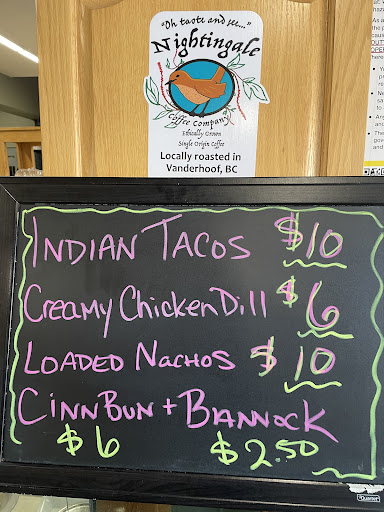 "Oh taste and see..."
Nightingale
Coffee Company
Ethically Grown
Single Origin Coffee
Locally roasted in
Vanderhoof, BC
INDIAN TACOS $10
CREAMY CHICKEN DILL $6
LOADED NACHOS $10
CINNBUN + BANNOCK
$6 $2.50
Quartet